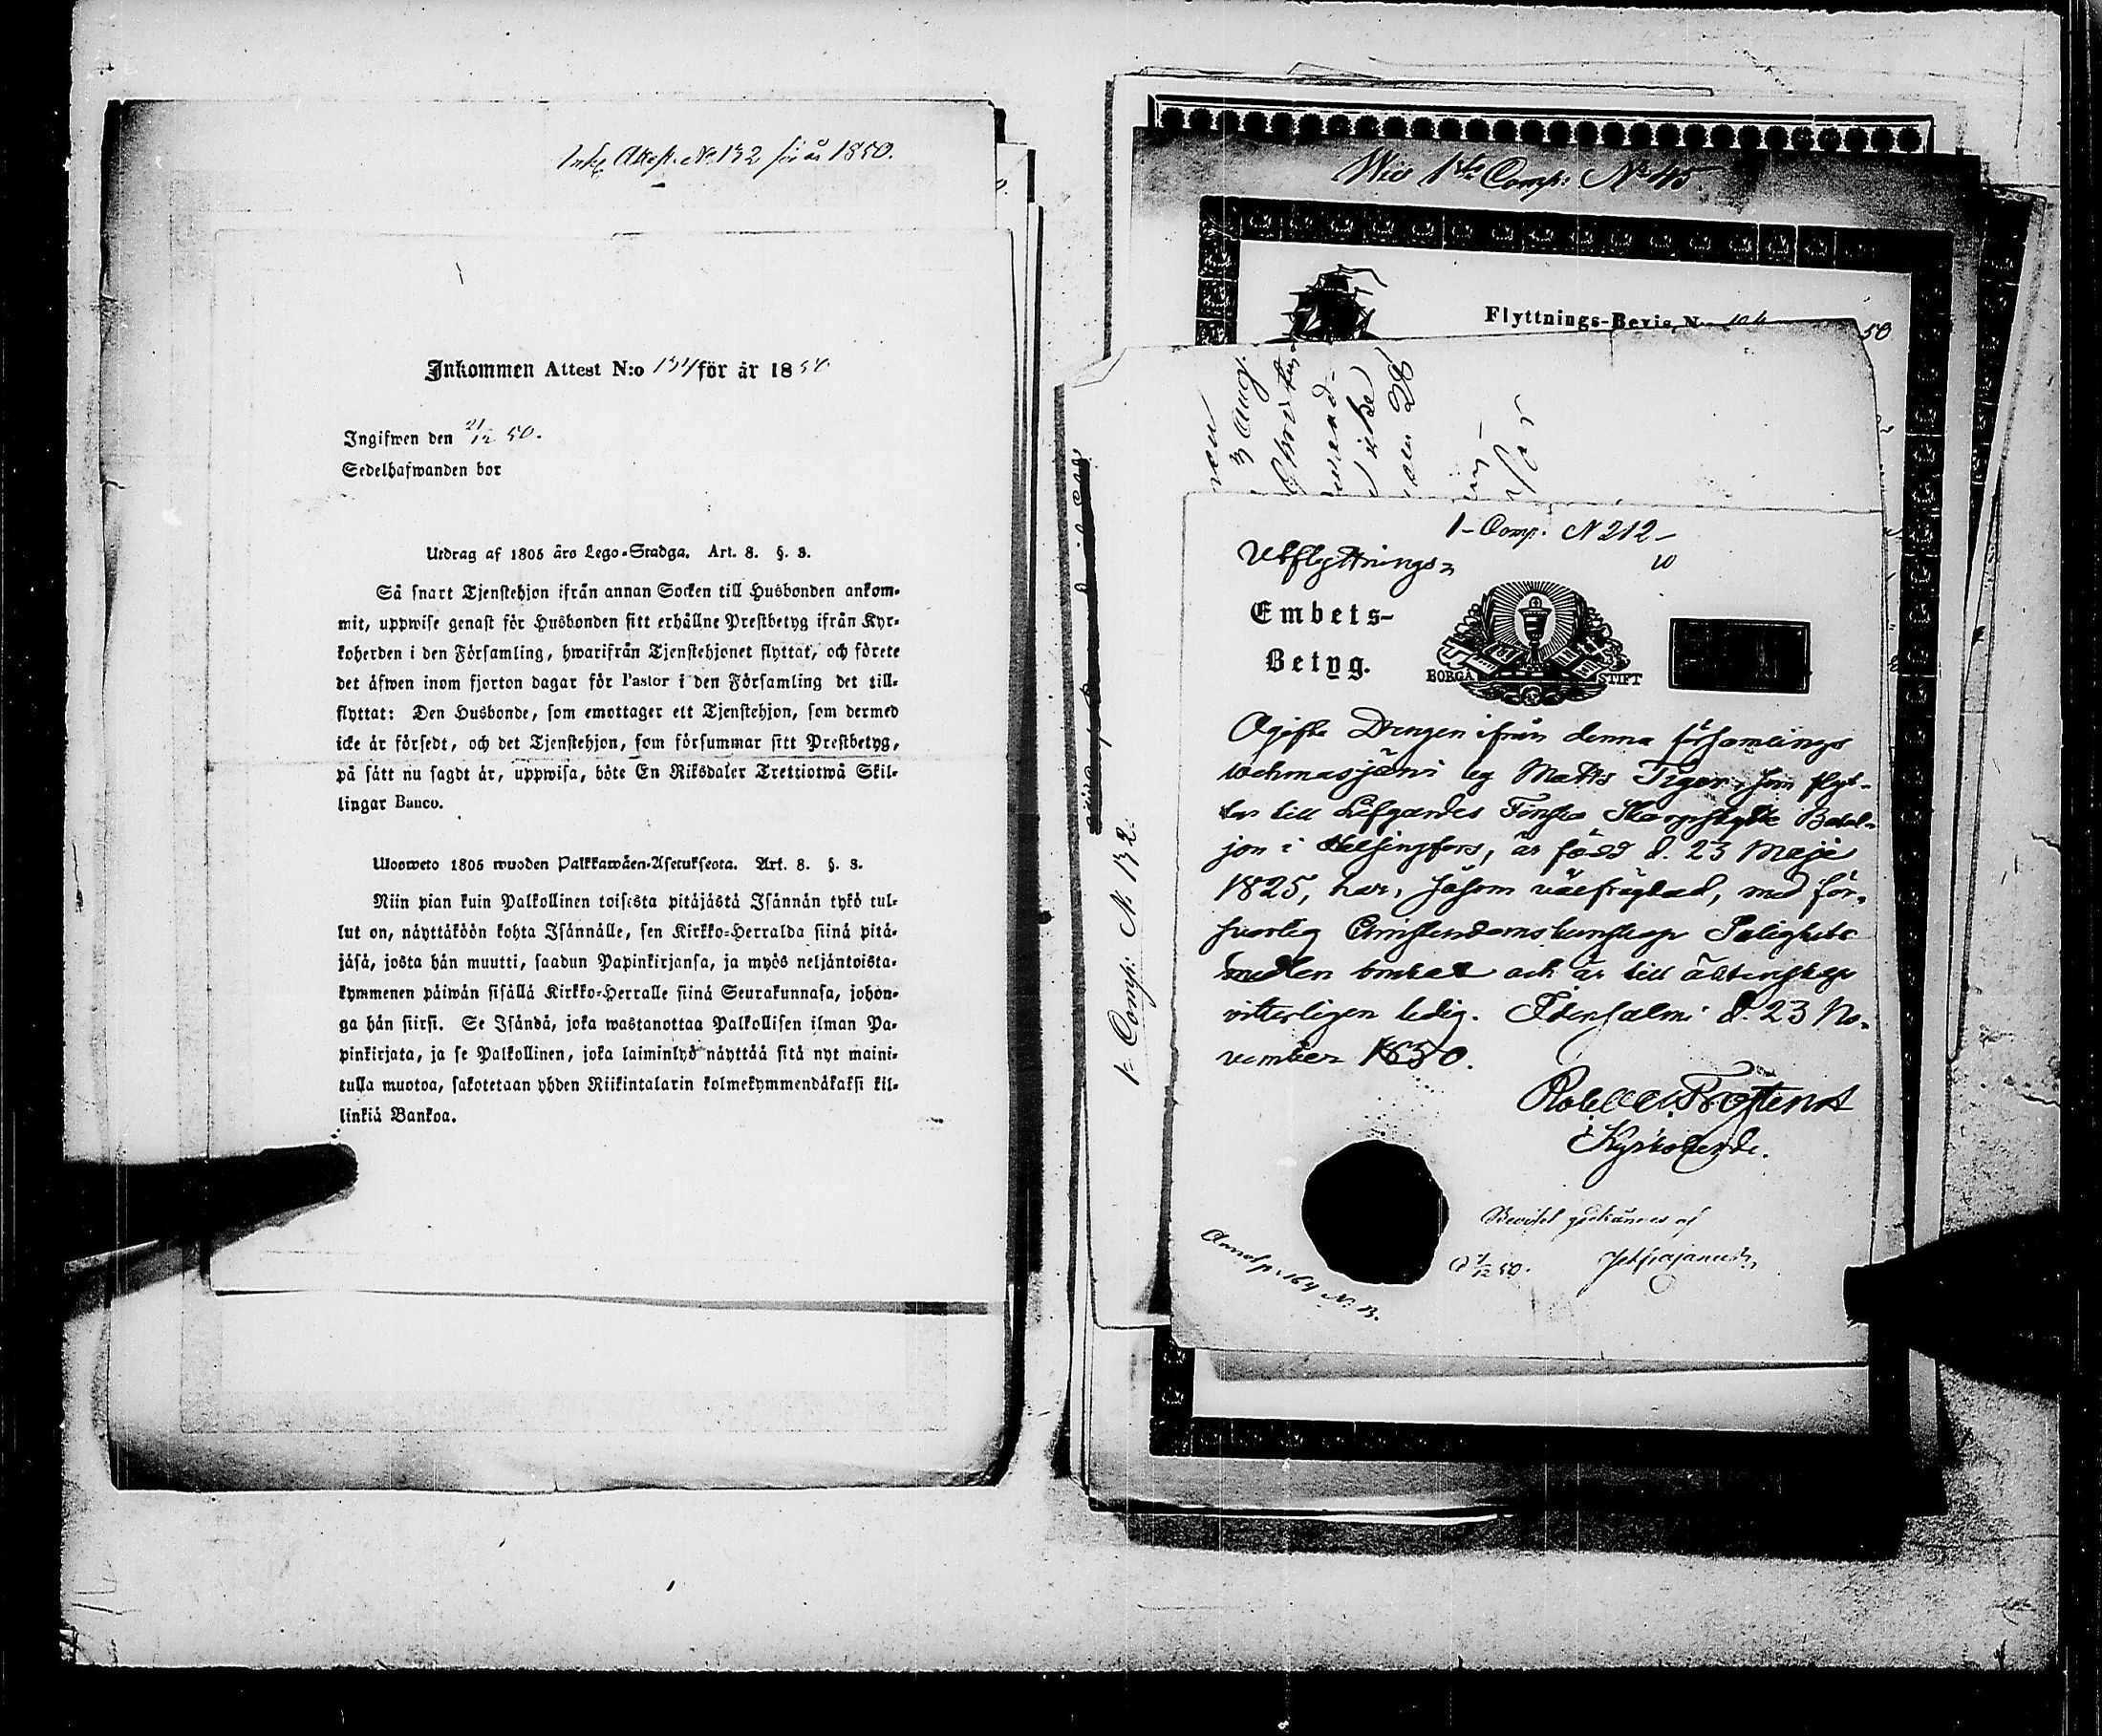 Ink. Attest. No. 132 för år 1850.
Inkommen Attest N:o 134 för år 1850
Ingifwen den 21/12 50.
Sedelhafwanden bor
Utdrag af 1805 års Lego-Stadga. Art. 8. §. 3.
Så snart Tjenstehjon ifrån annan Socken till Husbonden ankom-
mit, uppwise genast för Husbonden sitt erhållne Prestbetyg ifrån Kyr-
koherden i den Församling, hwarifrån Tjenstehjonet flyttat, och förete
det äfwen inom fjorton dagar för Pastor i den Församling det till-
flyttat: Den Husbonde, som emottager ett Tjenstehjon, som dermed
icke är försedt, och det Tjenstehjon, som försummar sitt Prestbetyg,
på sätt nu sagdt är, uppwisa, böte En Riksdaler Trettiotwå Skil-
lingar Banco.
Uloosweto 1805 wuoden Palkkawäen-Asetuksesta. Art. 8. §. 3.
Niin pian kuin Palkollinen toisesta pitäjästä Isännän tykö tul-
lut on, näyttäköön kohta Isännälle, sen Kirkko-Herralda siinä pitä-
jäsä, josta hän muutti, saadun Papinkirjansa, ja myös neljäntoista-
kymmenen päiwän sisällä Kirkko-Herralle siinä Seurakunnasa, johon-
ga hän siirsi. Se Isändä, joka wastanottaa Palkollisen ilman Pa-
pinkirjata, ja se Palkollinen, joka laiminlyö näyttää sitä nyt maini-
tulla muotoa, sakotetaan yhden Riikintalarin kolmekymmendäkaksi kil-
linkiä Bankoa.
Wid 1sta Comp: No 45.
Flyttnings-Bevis N:o
50
1 Comp: N 132.
1 Comp. N 212
Utflyttnings
Embets-
Betyg.
BORGÅ STIFT
Ogifte Drengen ifrån denna församlings
by Matts Tiger, som flyt-
tar till Lifgardes Finska Skarpskytte Batal-
jon i Helsingfors, är född d. 23 Maji
1825, har, såsom välfrägdad, med för-
svarlig Christendomskunskap Salighets
medlen brukat och är till äktenskap
vitterligen ledig. Idensalmi d. 23 No-
vember 1850.
Kyrkoherde.
Beviset godkännes af
d 3/12 50.
Annot p. 164 N. 13.